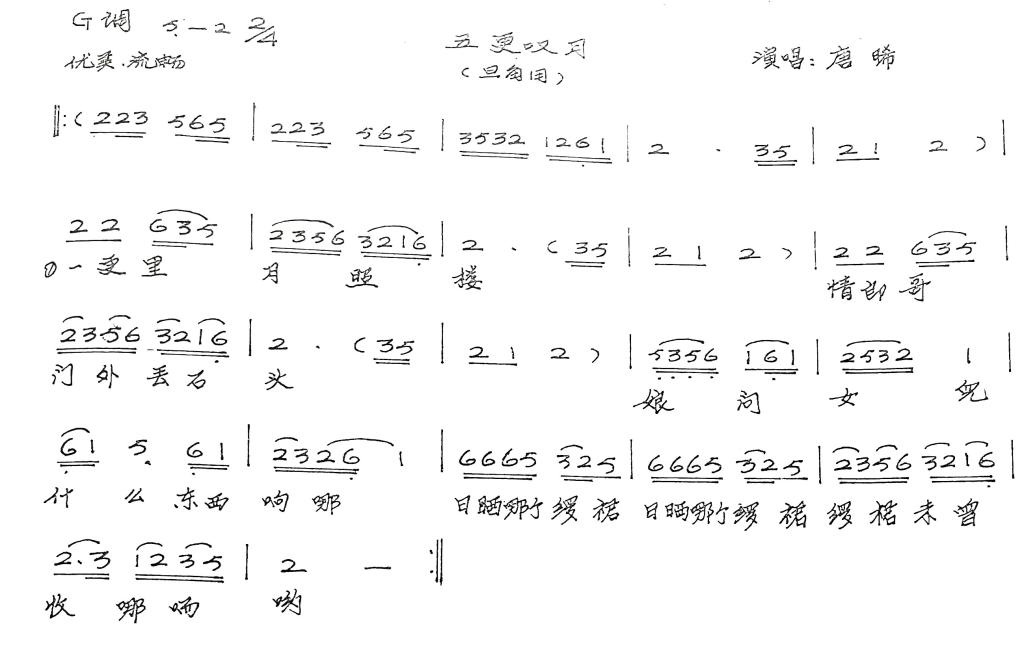 G调 5—2 2/4
五更叹月
优美·流畅
(旦角用)
演唱：唐晞
‖:(223 565 | 223 565 | 3532 1261 | 2 · 35 | 21 2 ) |
22 635 | 2356 3216 | 2 · ( 35 | 21 2 ) | 22 635 |
①一更里 月 照 楼 情郎哥
2356 3216 | 2 · ( 35 | 21 2 ) | 5356 161 | 2532 1 |
门外丢石 头 娘 问 女 儿
61 5 61 | 2326 1 | 6665 325 | 6665 325 | 2356 3216 |
什 么 东西 响哪 日晒哪 裙 日晒哪 裙 裙未曾
2·3 1235 | 2 — :‖
收 哪 哟